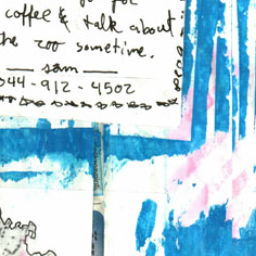 coffee & talk about
the zoo sometime.
— sam —
044-912-4502